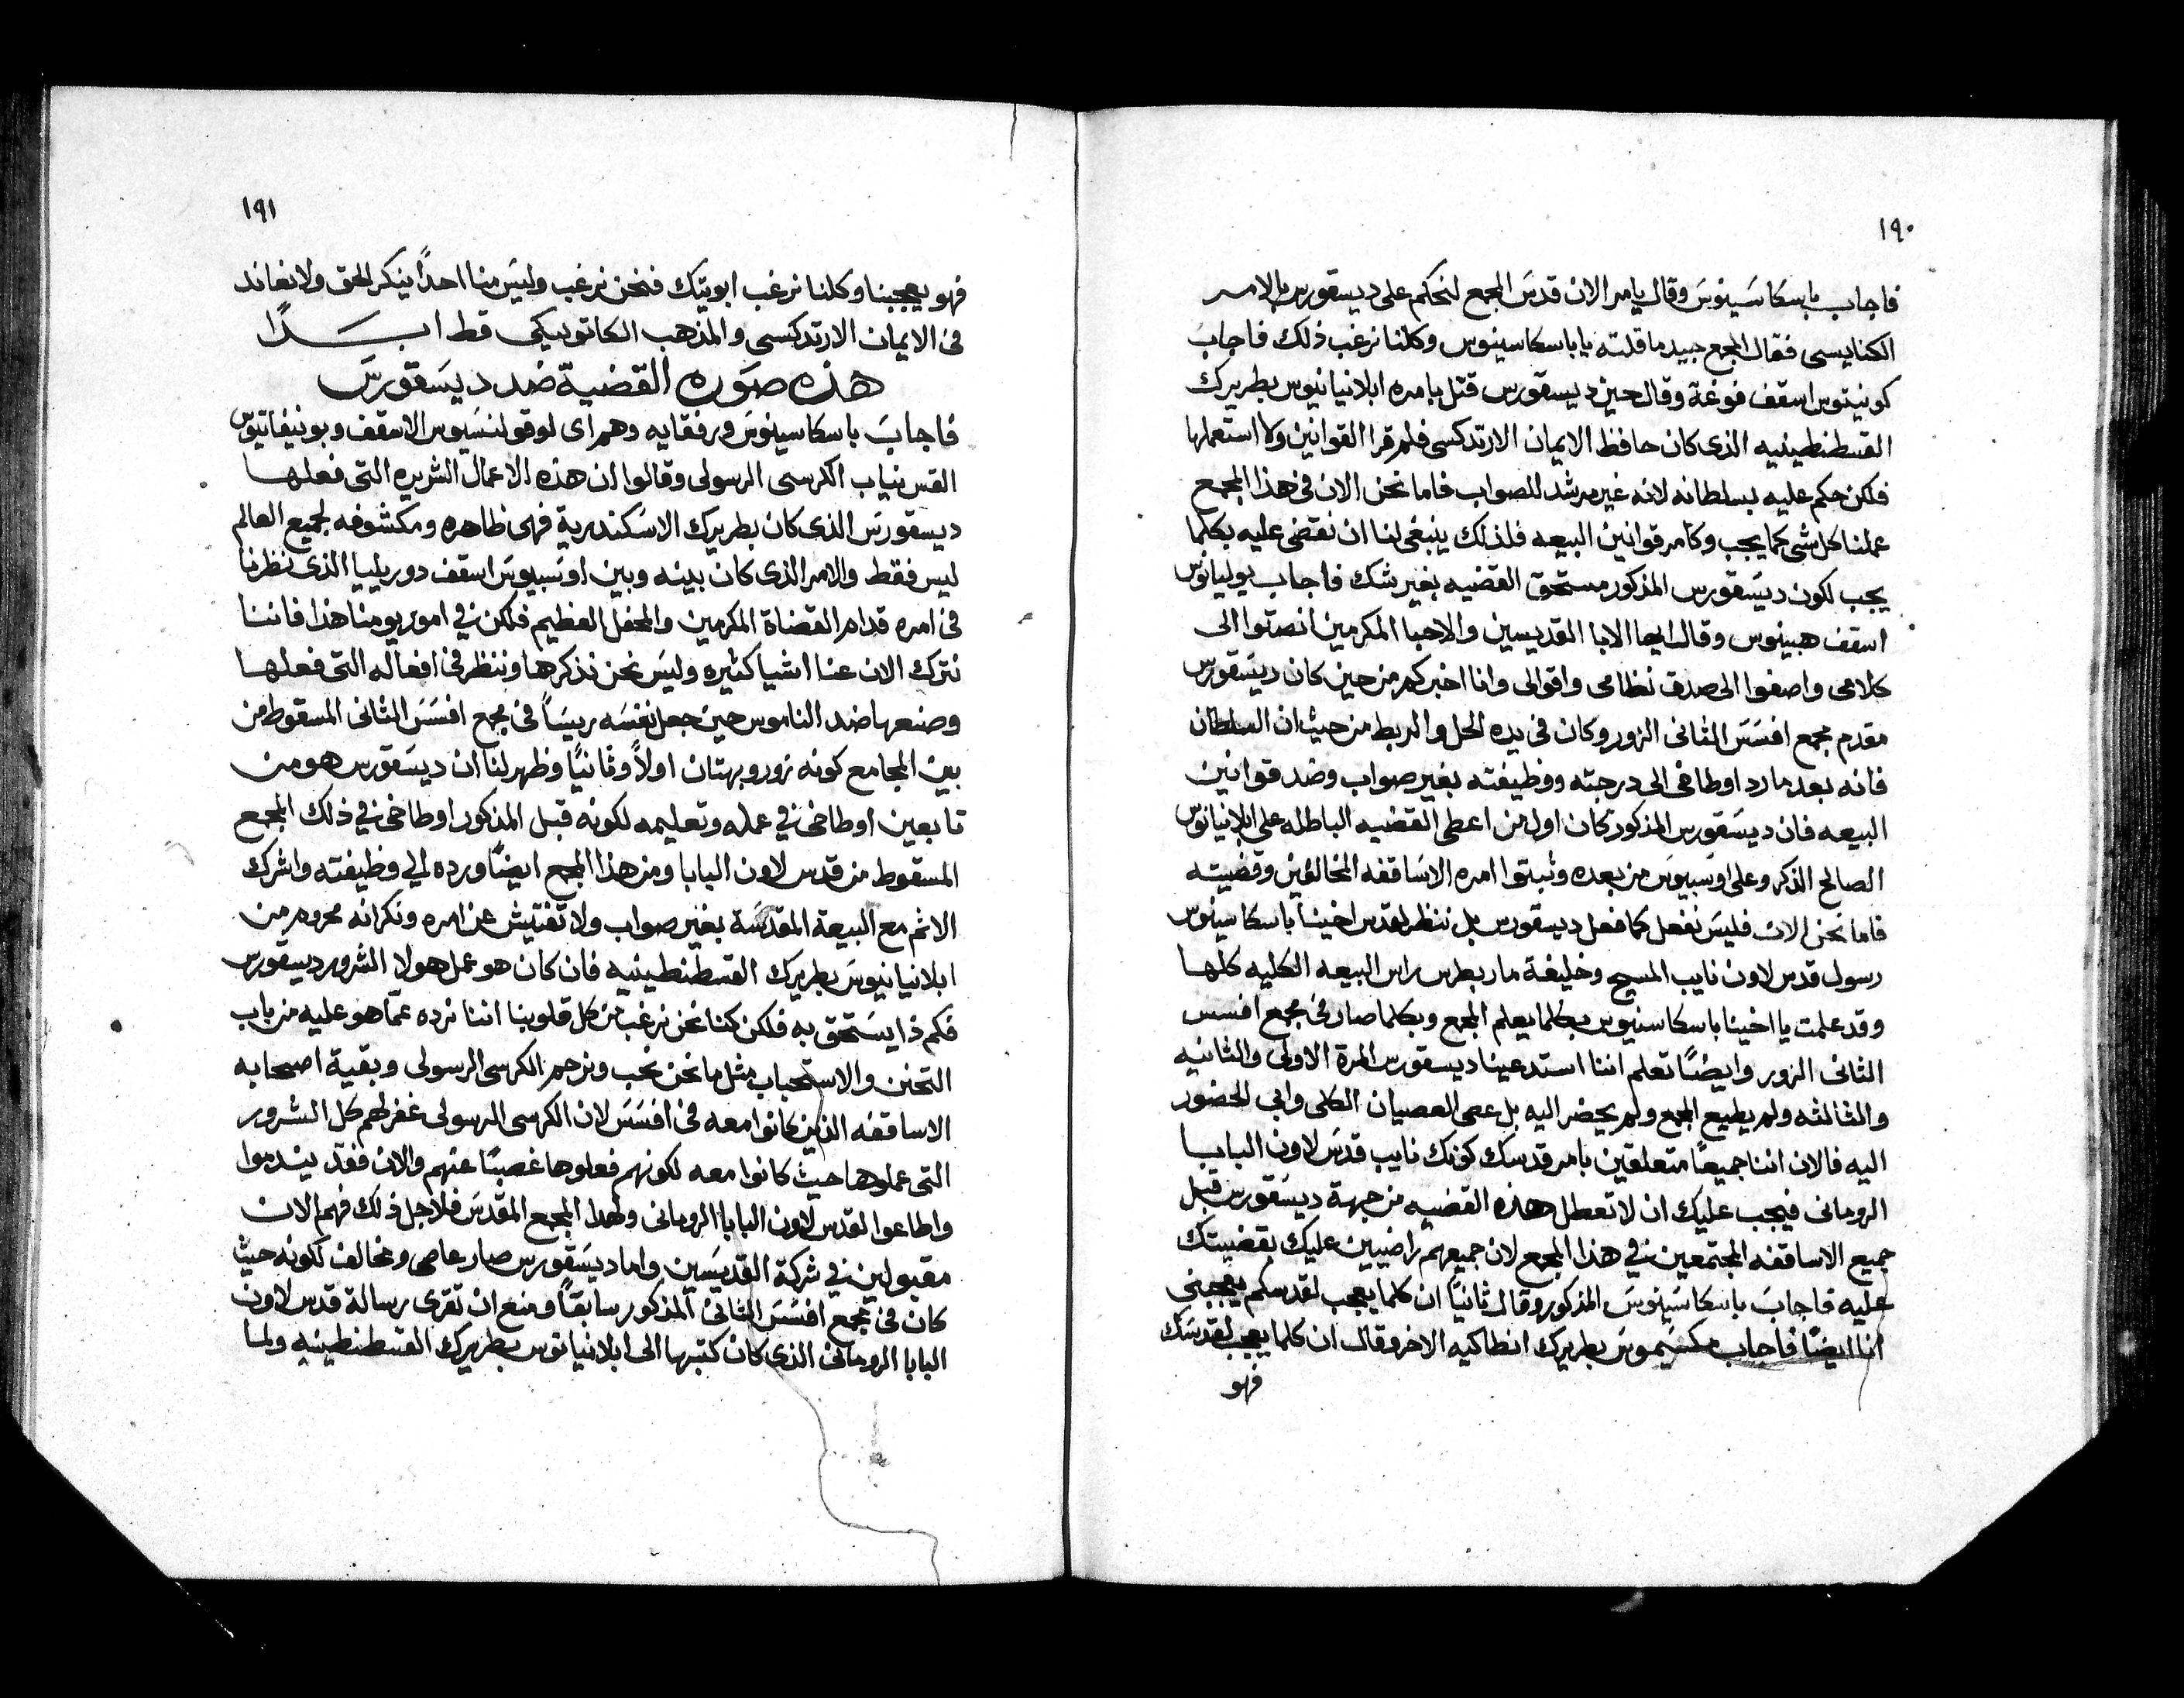 ١٩٠
فاجاب باسكاسينوس وقال يامر الان قدس المجمع لنحكم على ديسقورس بالامر
الكنايسى فقال المجمع جيد ما قلته يا باسكاسينوس وكلنا نرغب ذلك فاجاب
كونيتوس اسقف فوغة وقال حين ديسقورس قتل بامره ابلانيانيوس بطريرك
القسطنطينيه الذى كان حافظ الايمان الارتدكسى فلم قرا القوانين ولا استعملها
فلكن حكم عليه بسلطانه لانه غير مرشد للصواب فاما نحن الان فى هذا المجمع
عملنا كل شى كما يجب وكامر قوانين البيعه فلذلك ينبغى لنا ان نقضى عليه بكلما
يجب لكون ديسقورس المذكور مستحق القضيه بغير شك فاجاب يوليانوس
اسقف هبينوس وقال ايها الابا القديسين والاحبا المكرمين انصتوا الى
كلامى واصغوا الى صدق نظامى واقوالى وانا اخبركم من حين كان ديسقورس
مقدم مجمع افسس الثانى الزور وكان فى يده الحل والربط من حيث ان السلطان
فانه بعد ما رد اوطاخى الى درجته ووظيفته بغير صواب وضد قوانين
البيعه فان ديسقورس المذكور كان اول من اعطى القضيه الباطله على ابلانيانوس
الصالح الذكر وعلى اوسبيوس من بعده وثبتوا امره الاساقفه المخالفين وقضيته
فاما نحن الان فليس نفعل كما فعل ديسقورس بل ننظر لقدس اخينا باسكاسينوس
رسول قدس لاون نايب المسيح وخليفة مار بطرس راس البيعه الكليه كلها
وقد علمت يا اخينا باسكاسنيوس بكلما يعلم المجمع وبكلما صار فى مجمع افسس
الثانى الزور وايضًا تعلم اننا استدعينا ديسقورس المرة الاولى والثانيه
والثالثه ولم يطيع المجمع ولم يحضر اليه بل عصى العصيان الكلى وابى الحضور
اليه فالان اننا جميعًا متعلقين بامر قدسك كونك نايب قدس لاون البابا
الرومانى فيجب عليك ان لا تعطل هذه القضيه من جهة ديسقورس قبل
جميع الاساقفه المجتمعين فى هذا المجمع لان جميعهم راضيين عليك بقضيتك
عليه فاجاب باسكاسينوس المذكور وقال ثانيًا ان كلما يعجب لقدسكم يعجبنى
انا ايضًا فاجاب مكسيموس بطريرك انطاكيه الاخر وقال ان كلما يعجب لقدسك
فهو
١٩١
فهو يعجبنا وكلنا نرغب ابويتك فنحن نرغب وليس منا احدًا ينكر الحق ولا نعاند
فى الايمان الارتدكسى والمذهب الكاتوليكى قط ابــدًا
هذه صوره القضية ضد ديسقورس
فاجاب باسكاسينوس ورفقايه وهم اى لوقولنسيوس الاسقف وبونيفاتيوس
القس نياب الكرسى الرسولى وقالوا ان هذه الاعمال الشريره التى فعلها
ديسقورس الذى كان بطريرك الاسكندرية فهى ظاهره ومكشوفه لجميع العالم
ليس فقط والامر الذى كان بينه وبين اوسبيوس اسقف دوريليا الذى نظرنا
فى امره قدام القضاة المكرمين والمحفل العظيم فلكن فى امور يومنا هذا فاننا
نترك الان عنا اشيا كثيره وليس نحن نذكرها وننظر فى افعاله التى فعلها
وصنعها ضد الناموس حين جعل نفسه ريسًا فى مجمع افسس الثانى المسقوط من
بين المجامع كونه زور وبهتان اولاً وثانيًا وظهر لنا ان ديسقورس هو من
تابعين اوطاخى فى عمله وتعليمه لكونه قبل المذكور اوطاخى فى ذلك المجمع
المسقوط من قدس لاون البابا ومن هذا المجمع ايضًا ورده الى وظيفته واشرك
الاثم مع البيعة المقدسة بغير صواب ولا تفتيش عن امره ونكرانه محروم من
ابلانيانيوس بطريرك القسطنطينيه فان كان هو عمل هولا الشرور ديسقورس
فكم ذا يستحق به فلكن كنا نحن نرغب من كل قلوبنا اننا نرده عمّا هو عليه من باب
التحنن والاستحباب مثل ما نحن نحب ونرحم الكرسى الرسولى وبقية اصحابه
الاساقفه الذين كانوا معه فى افسس لان الكرسى الرسولى غفر لهم كل الشرور
التى عملوها حيث كانوا معه لكونهم فعلوها غصبًا عنهم والان فقد يندموا
واطاعوا لقدس لاون البابا الرومانى ولهدا المجمع المقدس فلاجل ذلك فهم الان
مقبولين فى شركة القديسين واما ديسقورس صار عاصى ومخالف لكونه حيث
كان فى مجمع افسس الثانى المذكور سابقًا ومنع ان تقرى رسالة قدس لاون
البابا الرومانى الذى كان كتبها الى ابلانيانوس بطريرك القسطنطينيه ولما